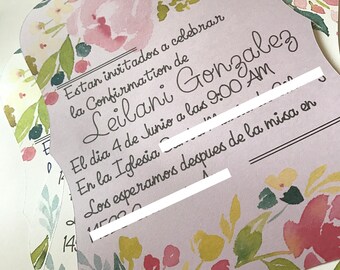 Estan invitados a celebrar
la Confirmation de
Leilani Gonzalez
El dia 4 de Junio a las 9:00 AM
En la Iglesia
Los esperamos despues de la misa en